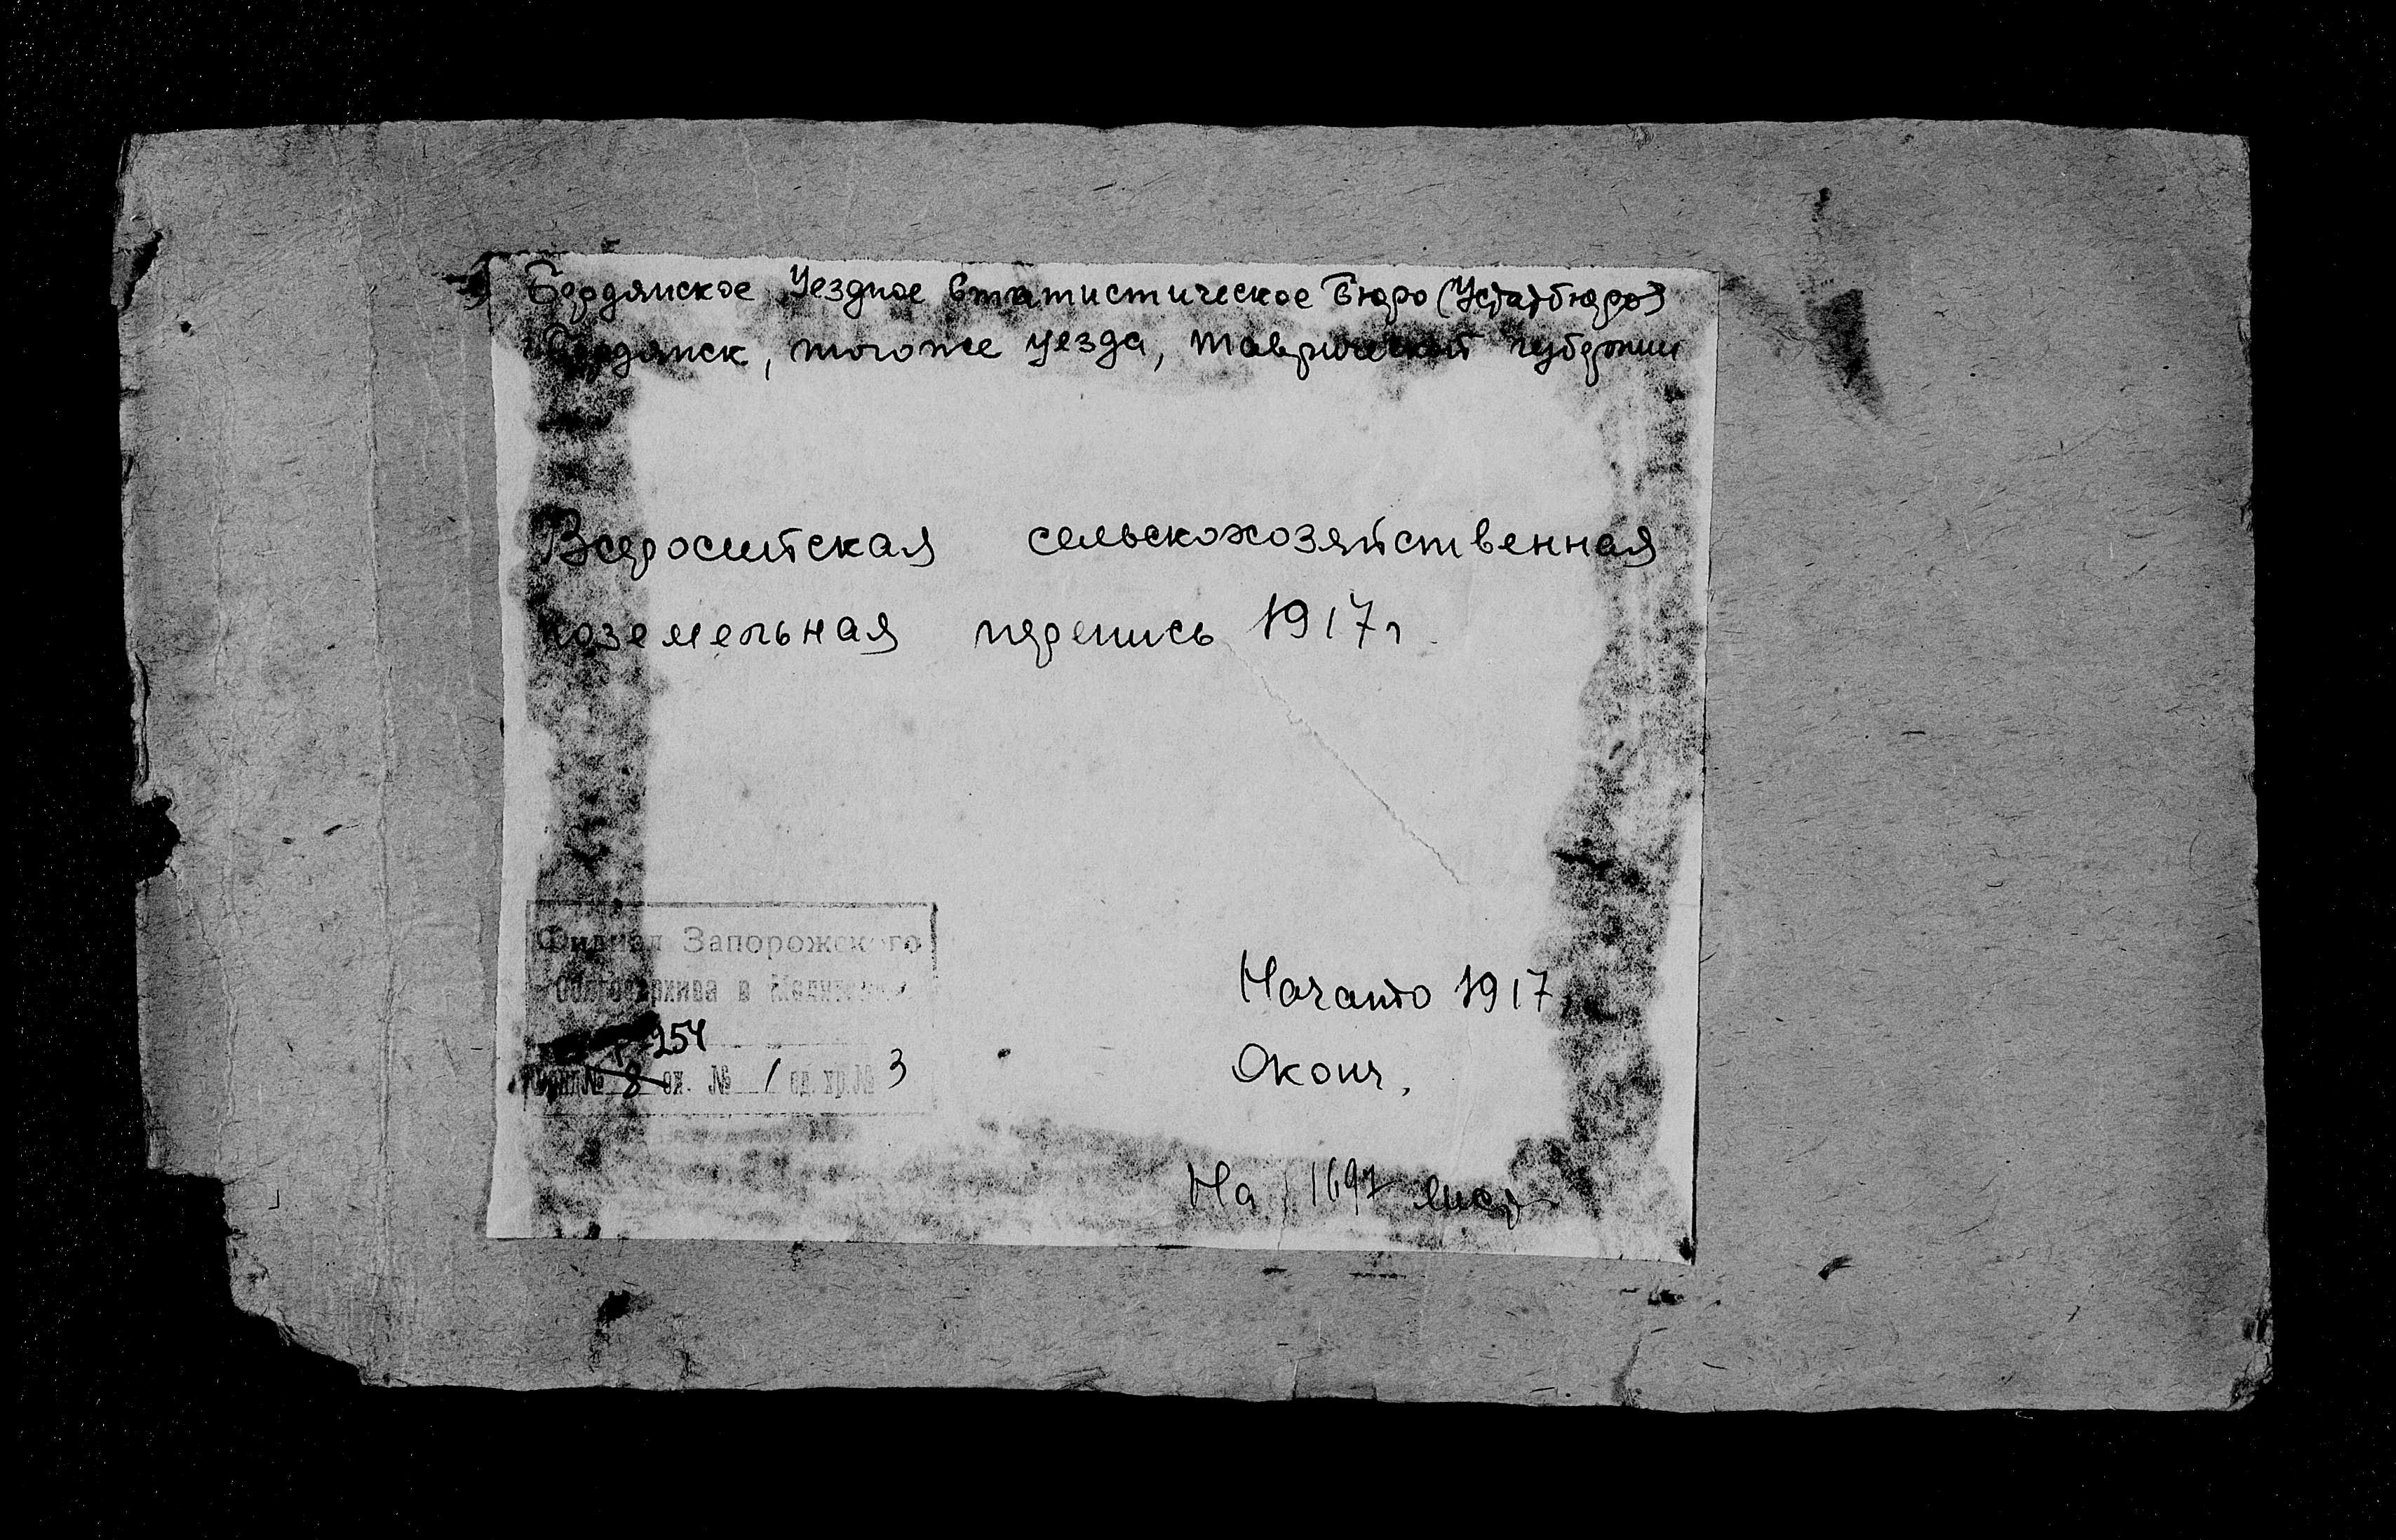 Бердянское Уездное Статистическое Бюро (Устатбюро)
Бердянск, тогоже уезда, Таврической губернии
Всеросийская сельскохозяйственная
поземельная перепись 1917г.
Филиал Запорожского
Облгосархива в
254
Фонд № 8 оп. № 1 ед. хр. № 3
Начато 1917
Оконч.
На 1697 лист